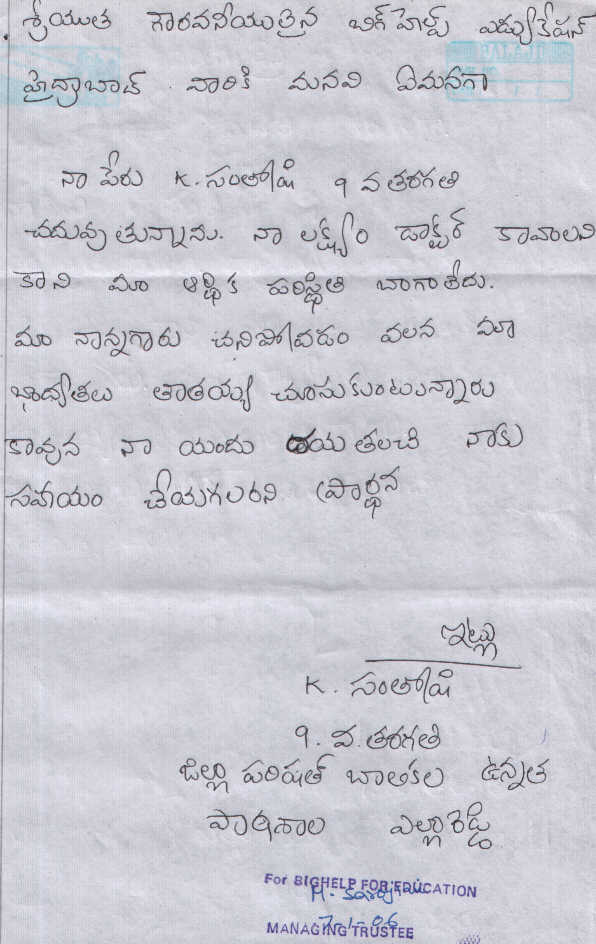 శ్రీయుత గౌరవనీయులైన బిగ్ హెల్ప్ ఎడ్యుకేషన్
హైద్రాబాద్ వారికి మనవి ఏమనగా
నా పేరు K. సంతోషి 9 వ తరగతి
చదువు తున్నాను. నా లక్ష్యం డాక్టర్ కావాలని
కాని మా ఆర్థిక పరిస్థితి బాగాలేదు.
మా నాన్నగారు చనిపోవడం వలన మా
భాద్యతలు తాతయ్య చూసుకుంటున్నారు
కావున నా యందు దయ తలచి నాకు
సహాయం చేయగలరని ప్రార్థన
ఇట్లు
K. సంతోషి
9. వ. తరగతి
జిల్లా పరిషత్ బాలికల ఉన్నత
పాఠశాల ఎల్లారెడ్డి
For BIGHELP FOR EDUCATION
MANAGING TRUSTEE